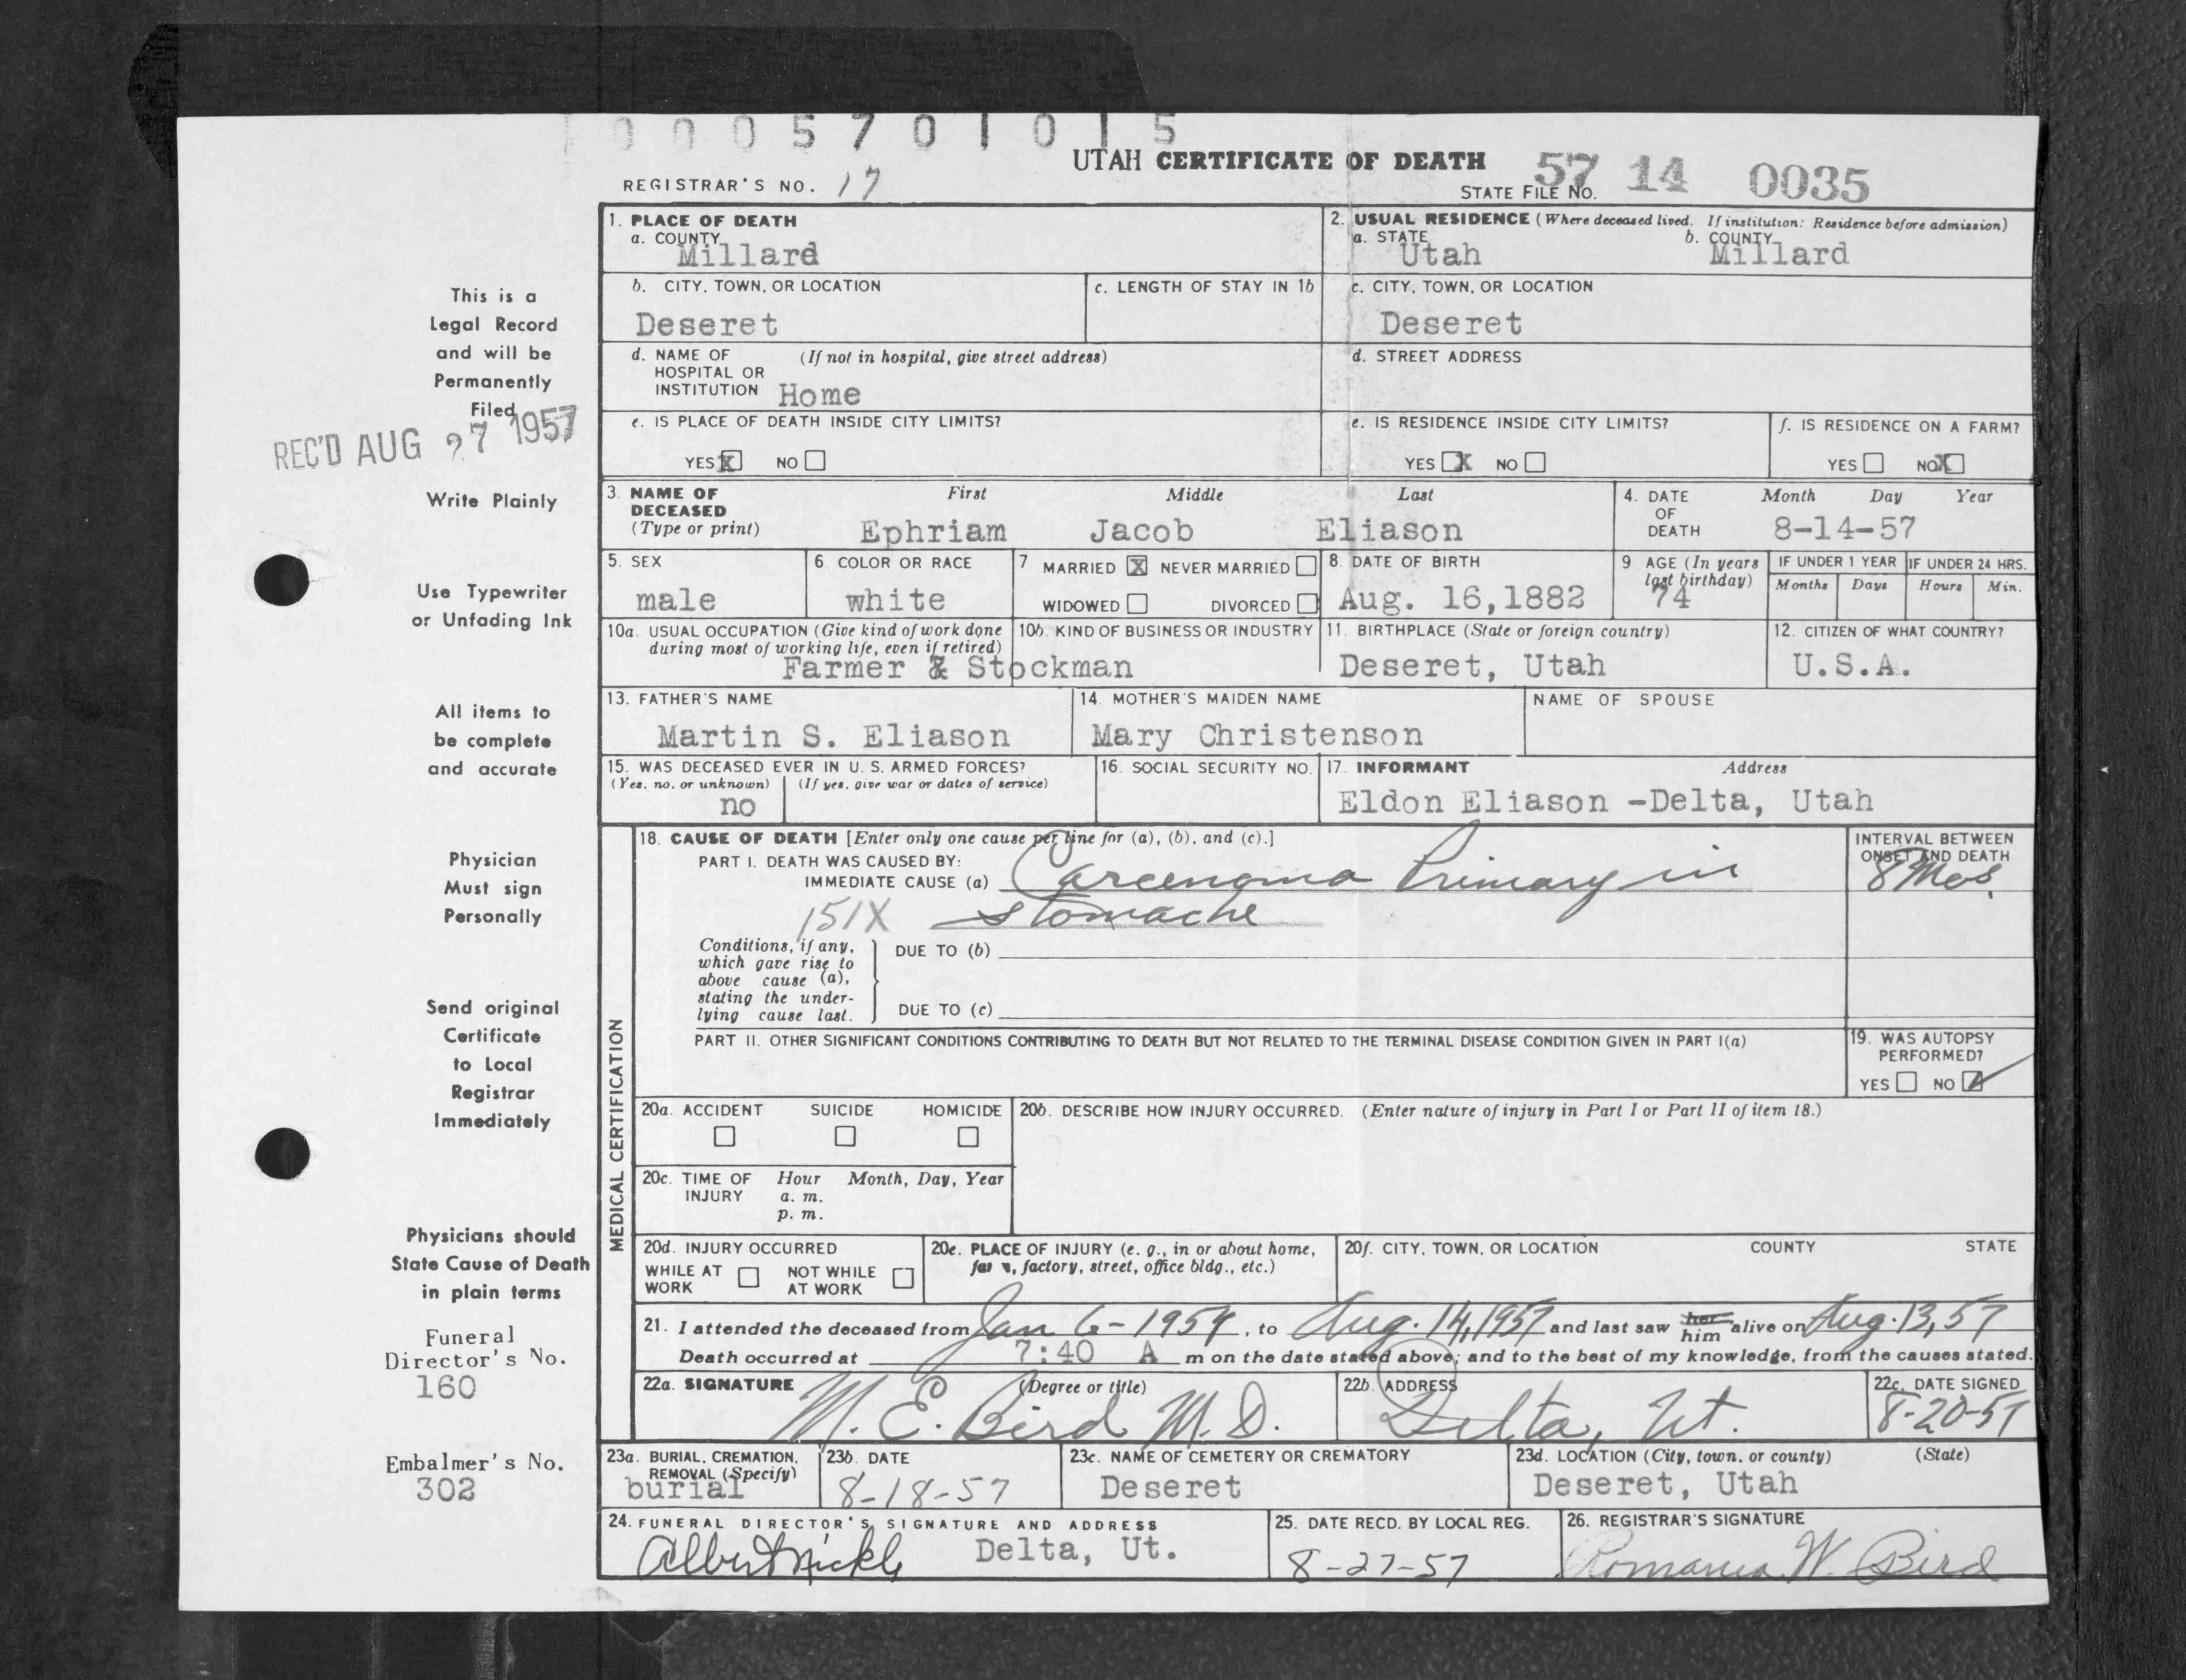 0 0 0 5 7 0 1 0 1 5
UTAH CERTIFICATE OF DEATH
REGISTRAR'S NO. 17
STATE FILE NO. 57 14 0035
This is a
Legal Record
and will be
Permanently
Filed
REC'D AUG 27 1957
Write Plainly
Use Typewriter
or Unfading Ink
All items to
be complete
and accurate
Physician
Must sign
Personally
Send original
Certificate
to Local
Registrar
Immediately
Physicians should
State Cause of Death
in plain terms
Funeral
Director's No.
160
Embalmer's No.
302
1. PLACE OF DEATH
a. COUNTY
Millard
2. USUAL RESIDENCE (Where deceased lived. If institution: Residence before admission)
a. STATE
Utah
b. COUNTY
Millard
b. CITY, TOWN, OR LOCATION
Deseret
c. LENGTH OF STAY IN 1b
c. CITY, TOWN, OR LOCATION
Deseret
d. NAME OF (If not in hospital, give street address)
HOSPITAL OR
INSTITUTION Home
d. STREET ADDRESS
e. IS PLACE OF DEATH INSIDE CITY LIMITS?
YES X NO
e. IS RESIDENCE INSIDE CITY LIMITS?
YES X NO
f. IS RESIDENCE ON A FARM?
YES NO X
3. NAME OF
DECEASED
(Type or print)
First Middle Last
Ephriam Jacob Eliason
4. DATE
OF
DEATH
Month Day Year
8-14-57
5. SEX
male
6. COLOR OR RACE
white
7 MARRIED X NEVER MARRIED
WIDOWED DIVORCED
8. DATE OF BIRTH
Aug. 16,1882
9 AGE (In years
last birthday)
74
IF UNDER 1 YEAR
Months Days
IF UNDER 24 HRS.
Hours Min.
10a. USUAL OCCUPATION (Give kind of work done
during most of working life, even if retired)
10b. KIND OF BUSINESS OR INDUSTRY
Farmer & Stockman
11. BIRTHPLACE (State or foreign country)
Deseret, Utah
12. CITIZEN OF WHAT COUNTRY?
U.S.A.
13. FATHER'S NAME
Martin S. Eliason
14. MOTHER'S MAIDEN NAME
Mary Christenson
NAME OF SPOUSE
15. WAS DECEASED EVER IN U. S. ARMED FORCES?
(Yes, no, or unknown) (If yes, give war or dates of service)
no
16. SOCIAL SECURITY NO.
17. INFORMANT Address
Eldon Eliason -Delta, Utah
MEDICAL CERTIFICATION
18. CAUSE OF DEATH [Enter only one cause per line for (a), (b), and (c).]
PART I. DEATH WAS CAUSED BY:
IMMEDIATE CAUSE (a) Carcenoma Primary in
151X stomache
INTERVAL BETWEEN
ONSET AND DEATH
8 Mos.
Conditions, if any,
which gave rise to
above cause (a),
stating the under-
lying cause last.
DUE TO (b)
DUE TO (c)
PART II. OTHER SIGNIFICANT CONDITIONS CONTRIBUTING TO DEATH BUT NOT RELATED TO THE TERMINAL DISEASE CONDITION GIVEN IN PART I(a)
19. WAS AUTOPSY
PERFORMED?
YES NO
20a. ACCIDENT SUICIDE HOMICIDE
20b. DESCRIBE HOW INJURY OCCURRED. (Enter nature of injury in Part I or Part II of item 18.)
20c. TIME OF Hour Month, Day, Year
INJURY a. m.
p. m.
20d. INJURY OCCURRED
WHILE AT NOT WHILE
WORK AT WORK
20e. PLACE OF INJURY (e. g., in or about home,
factory, street, office bldg., etc.)
20f. CITY, TOWN, OR LOCATION COUNTY STATE
21. I attended the deceased from Jan 6-1954, to Aug. 14, 1957 and last saw her him alive on Aug. 13, 57
Death occurred at 7:40 A m on the date stated above; and to the best of my knowledge, from the causes stated.
22a. SIGNATURE (Degree or title)
M. E. Bird M.D.
22b. ADDRESS
Delta, Ut.
22c. DATE SIGNED
8-20-57
23a. BURIAL, CREMATION,
REMOVAL (Specify)
burial
23b. DATE
8-18-57
23c. NAME OF CEMETERY OR CREMATORY
Deseret
23d. LOCATION (City, town, or county) (State)
Deseret, Utah
24. FUNERAL DIRECTOR'S SIGNATURE AND ADDRESS
Albert Nickle Delta, Ut.
25. DATE RECD. BY LOCAL REG.
8-27-57
26. REGISTRAR'S SIGNATURE
Romania W. Bird